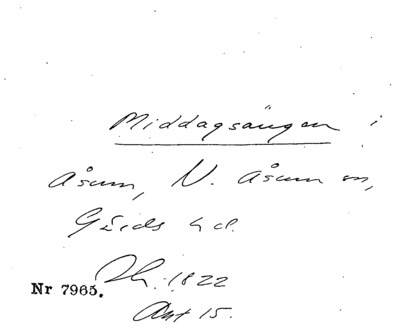 Middagsängen i
Åsum, N. Åsum sn,
Gärds hd.
1822
Nr 7965.
Akt 15.